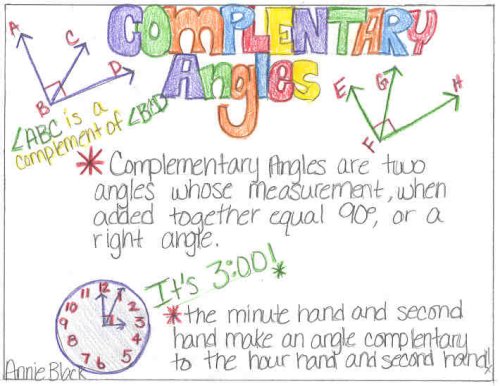 COMPLENTARY
Angles
A
C
D
B
E
G
H
F
∠ABC is a
complement of ∠BAD
* Complementary Angles are two
angles whose measurement, when
added together equal 90°, or a
right angle.
It's 3:00! *
12
1
2
3
4
5
6
7
8
9
10
11
* the minute hand and second
hand make an angle complentary
to the hour hand and second hand!
Annie Black